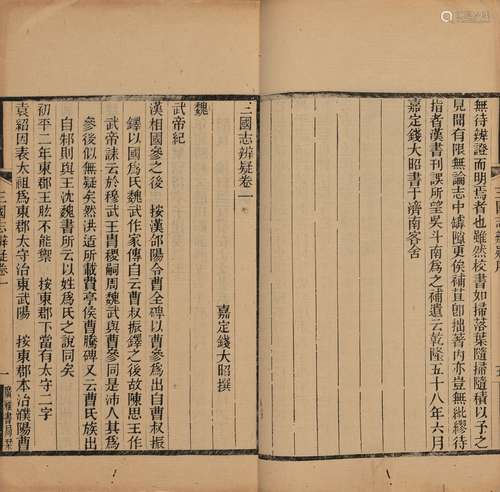 無待辨證而明焉者也雖然校書如掃落葉隨掃隨積以予之
見聞有限無論志中罅隙更俟補苴卽拙著內亦豈無紕繆待
指者漢書刊誤所望吳斗南為之補遺云乾隆五十八年六月
嘉定錢大昭書于濟南客舍
三國志辨疑卷一
嘉定錢大昭撰
魏
武帝紀
漢相國參之後 按漢郃陽令曹全碑以為出自曹叔振
鐸以國為氏魏武作家傳自云曹叔振鐸之後故陳思王作
武帝誄云於穆武王冑稷胤周魏武與曹參同是沛人其為
參後似無疑矣然洪适所載費亭侯曹騰碑又云曹氏族出
自邾則與王沈魏書所云以姓為氏之說同矣
初平二年東郡王肱不能禦 按東郡下當有太守二字
袁紹因表太祖為東郡太守治東武陽 按東郡本治濮陽曹
三國志辨疑卷一
一
廣雅書局栞